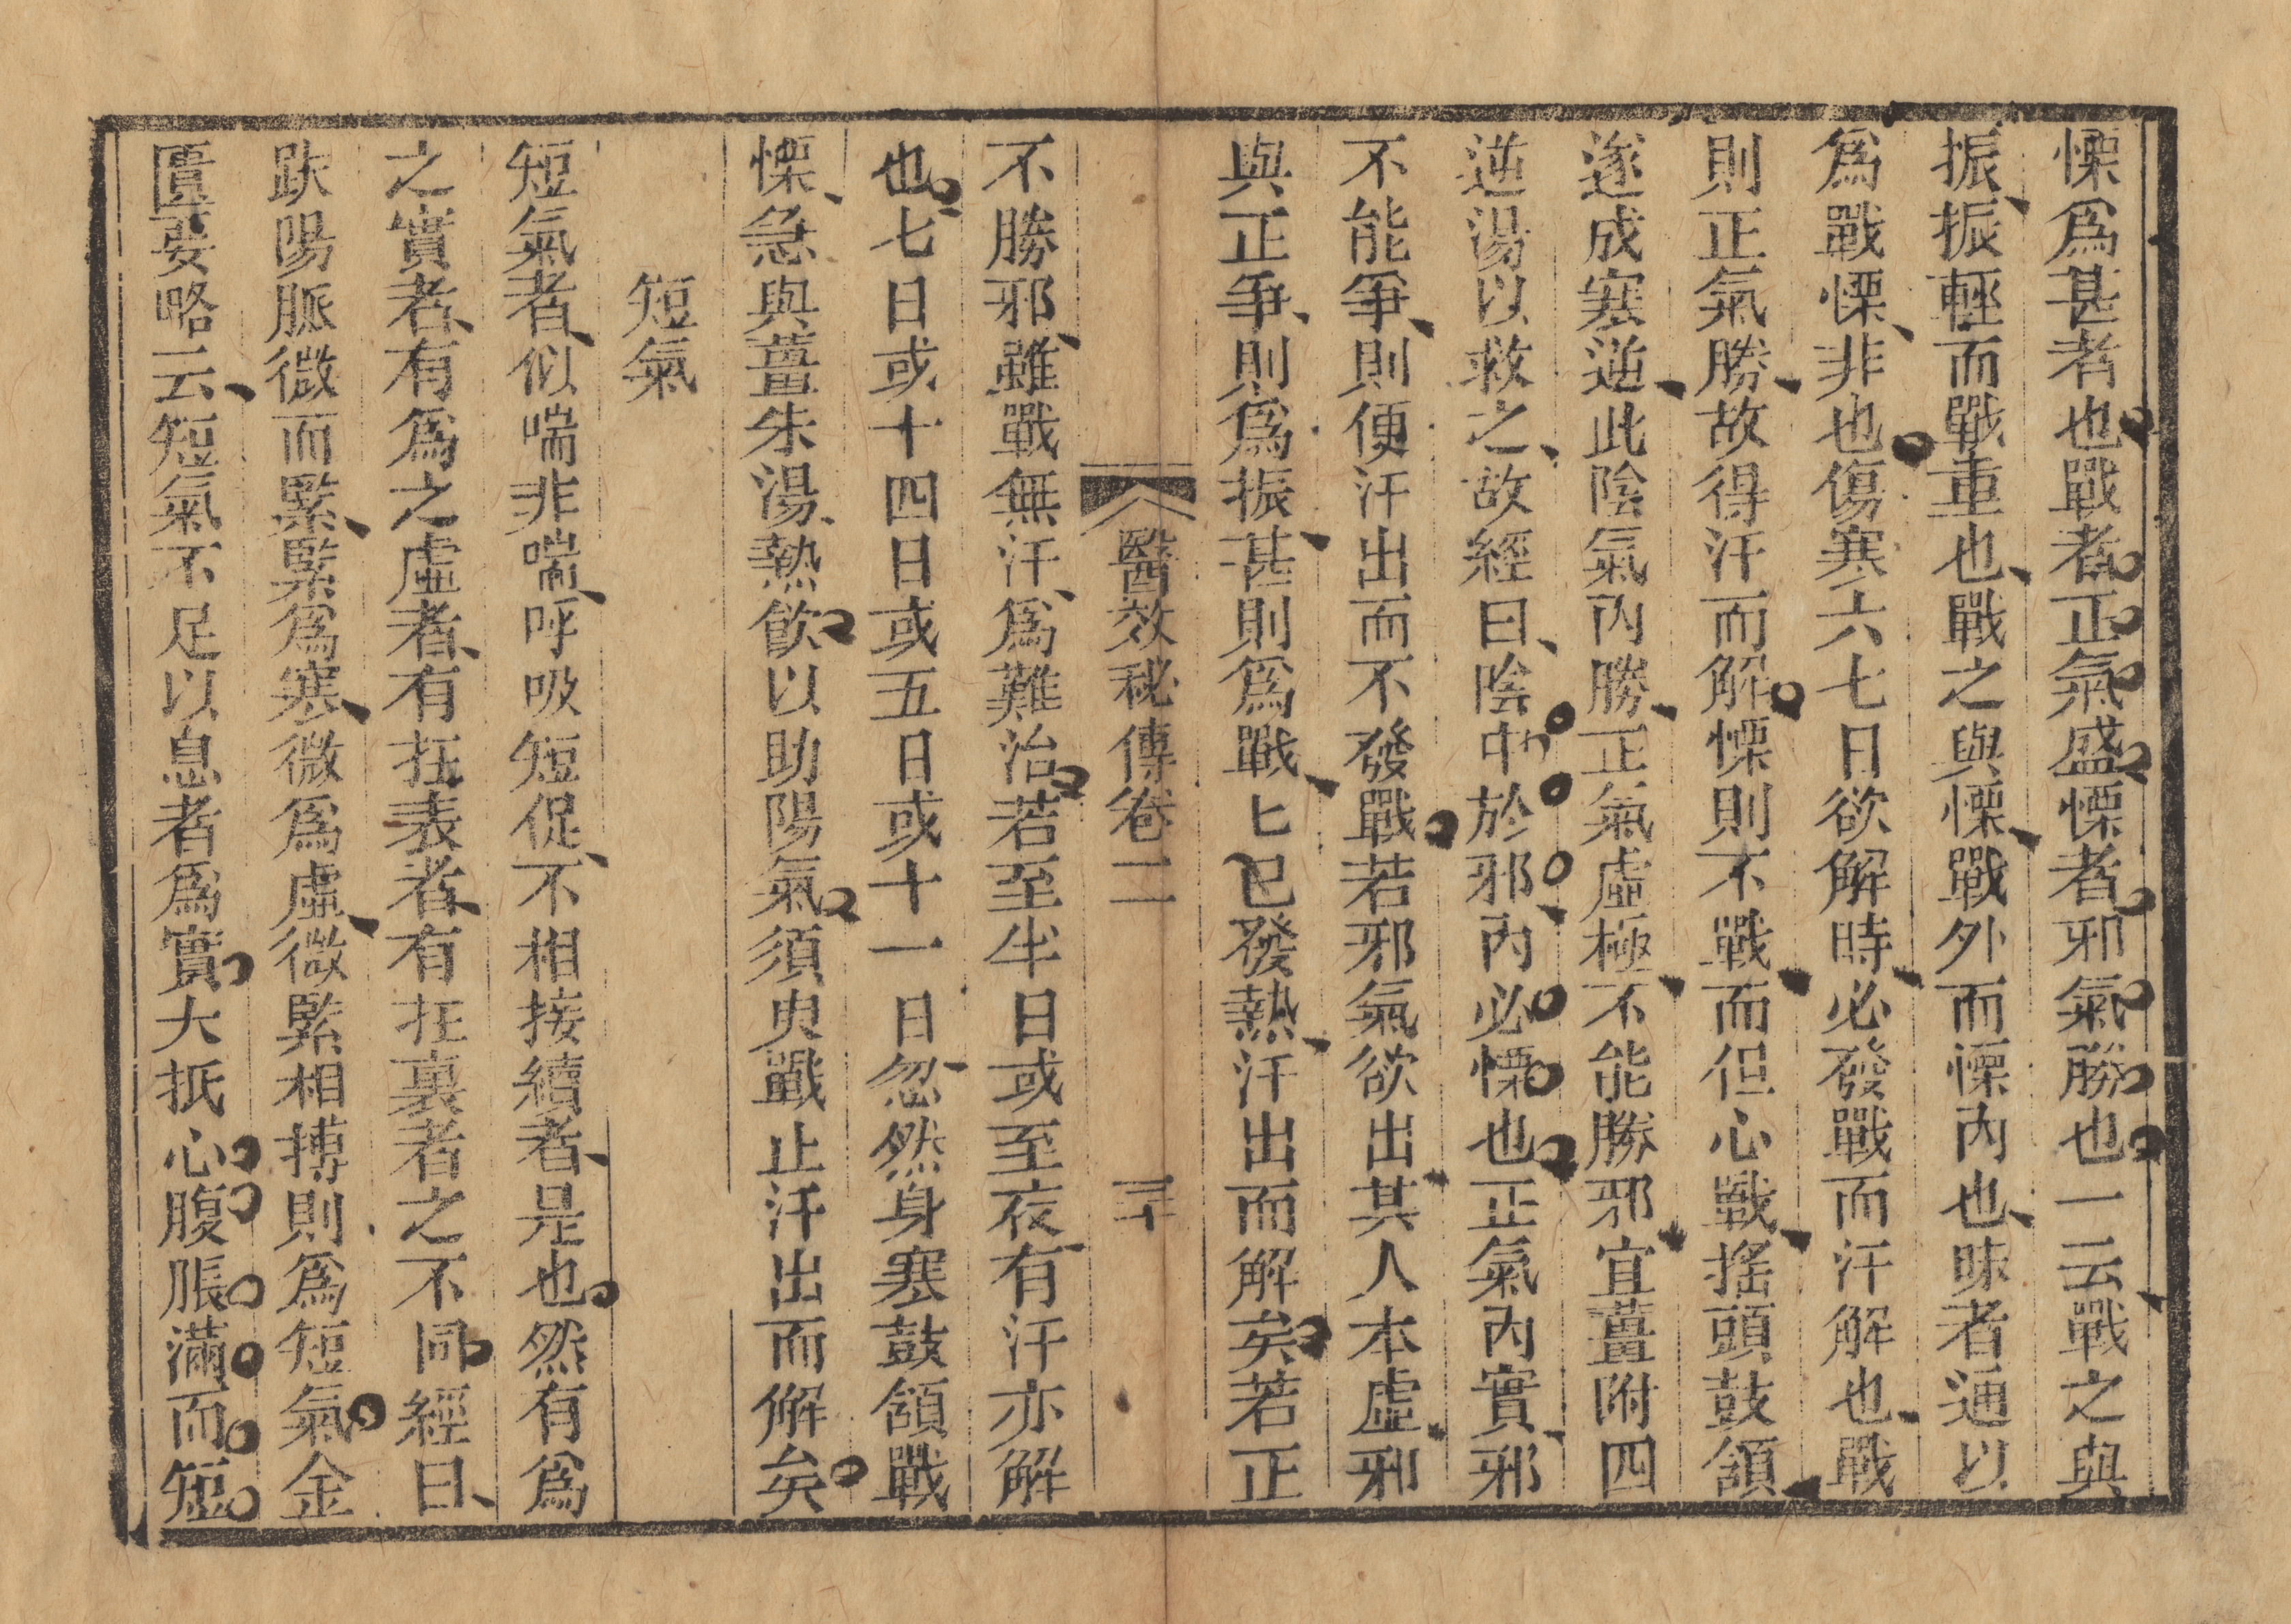 慄爲甚者也戰者正氣盛慄者邪氣勝也一云戰之與
振振輕而戰重也戰之與慄戰外而慄內也昧者通以
爲戰慄非也傷寒六七日欲解時必發戰而汗解也戰
則正氣勝故得汗而解慄則不戰而但心戰搖頭鼓頷
遂成寒逆此陰氣內勝正氣虛極不能勝邪宜薑附四
逆湯以救之故經曰陰中於邪內必慄也正氣內實邪
不能爭則便汗出而不發戰若邪氣欲出其人本虛邪
與正爭則爲振甚則爲戰匕已發熱汗出而解矣若正
醫效秘傳卷二 三十
不勝邪雖戰無汗爲難治若至半日或至夜有汗亦解
也七日或十四日或五日或十一日忽然身寒鼓頷戰
慄急與薑朱湯熱飲以助陽氣須臾戰止汗出而解矣
短氣
短氣者似喘非喘呼吸短促不相接續者是也然有爲
之實者有爲之虛者有在表者有在裏者之不同經曰
趺陽脈微而緊緊爲寒微爲虛微緊相搏則爲短氣金
匱要略云短氣不足以息者爲實大抵心腹脹滿而短